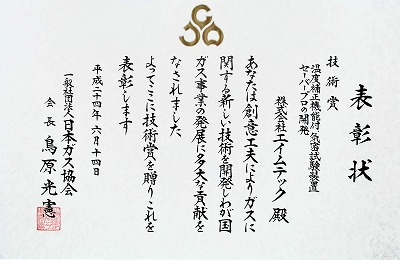 表彰状
技術賞
温度補正機能付気密試験装置
セーバープロの開発
株式会社エイムテック 殿
あなたは創意工夫によりガスに
関する新しい技術を開発しわが国
ガス事業の発展に多大な貢献を
なされました
よってここに技術賞を贈りこれを
表彰します
平成二十四年六月十四日
一般社団法人日本ガス協会
会長 鳥原光憲